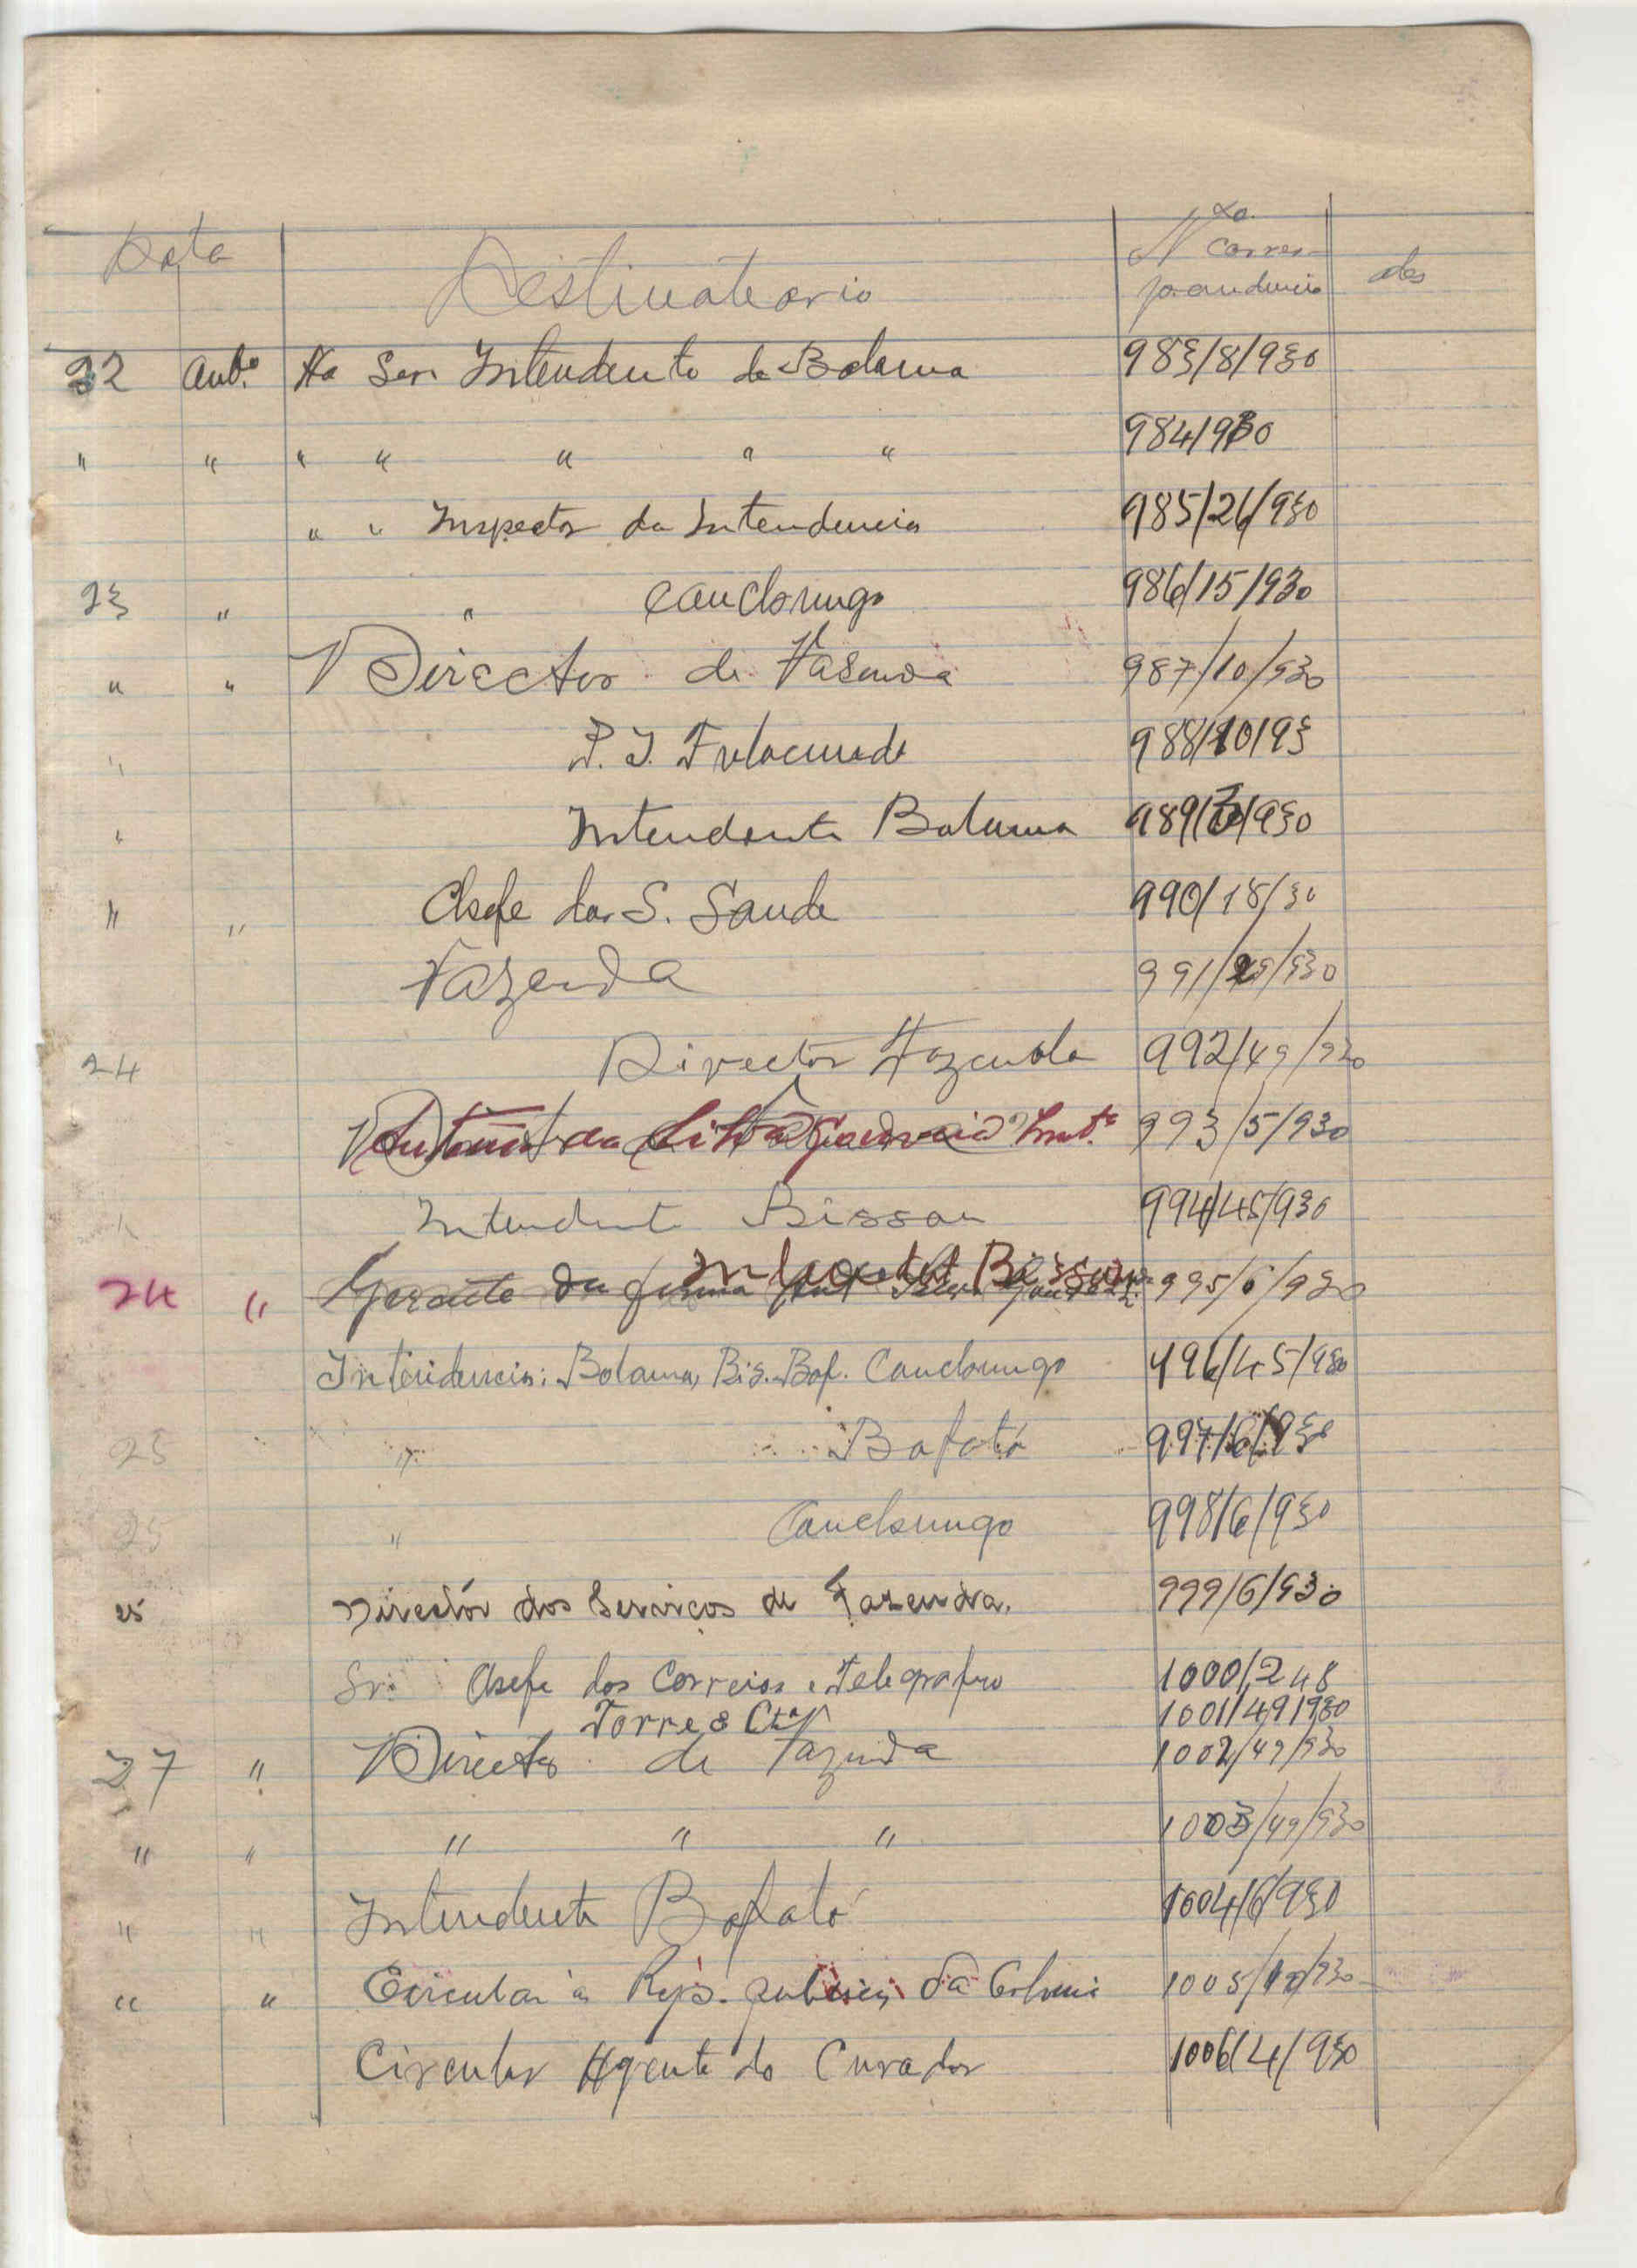 Data Destinatario Nº da corres-
pondencia obs
22 outº. Ao Snr. Intendente de Bolama 983/8/930
" " " " " " " 984/930
" " Inspector da Intendencia 985/26/930
23 " " Canchungo 986/15/930
" " Director de Fasenda 987/10/930
" P. I. Fulacunda 988/10/93
" Intendente Bolama 989/ /930
" " Chefe dos S. Saude 990/18/30
Fazenda 991/29/930
24 Director Fazenda 992/49/930
993/5/930
" Intendente Bissau 994/45/930
24 " Gerente da firma Bissau 995/6/930
Intendencia: Bolama, Bis. Baf. Canchungo 996/45/930
25 " Bafatá 997/6/930
25 " Canchungo 998/6/930
25 Director dos Serviços de Fazenda. 999/6/930
Sr. Chefe dos Correios e Telegrafos 1000/248
Torre & Ctª 1001/49/930
27 " Director de Fazenda 1002/49/930
" " " " " 1003/49/930
" " Intendente Bafatá 1004/6/930
" " Circular ás Rep. publicas da Colonia 1005/10/930
Circular Agente do Curador 1006/4/930